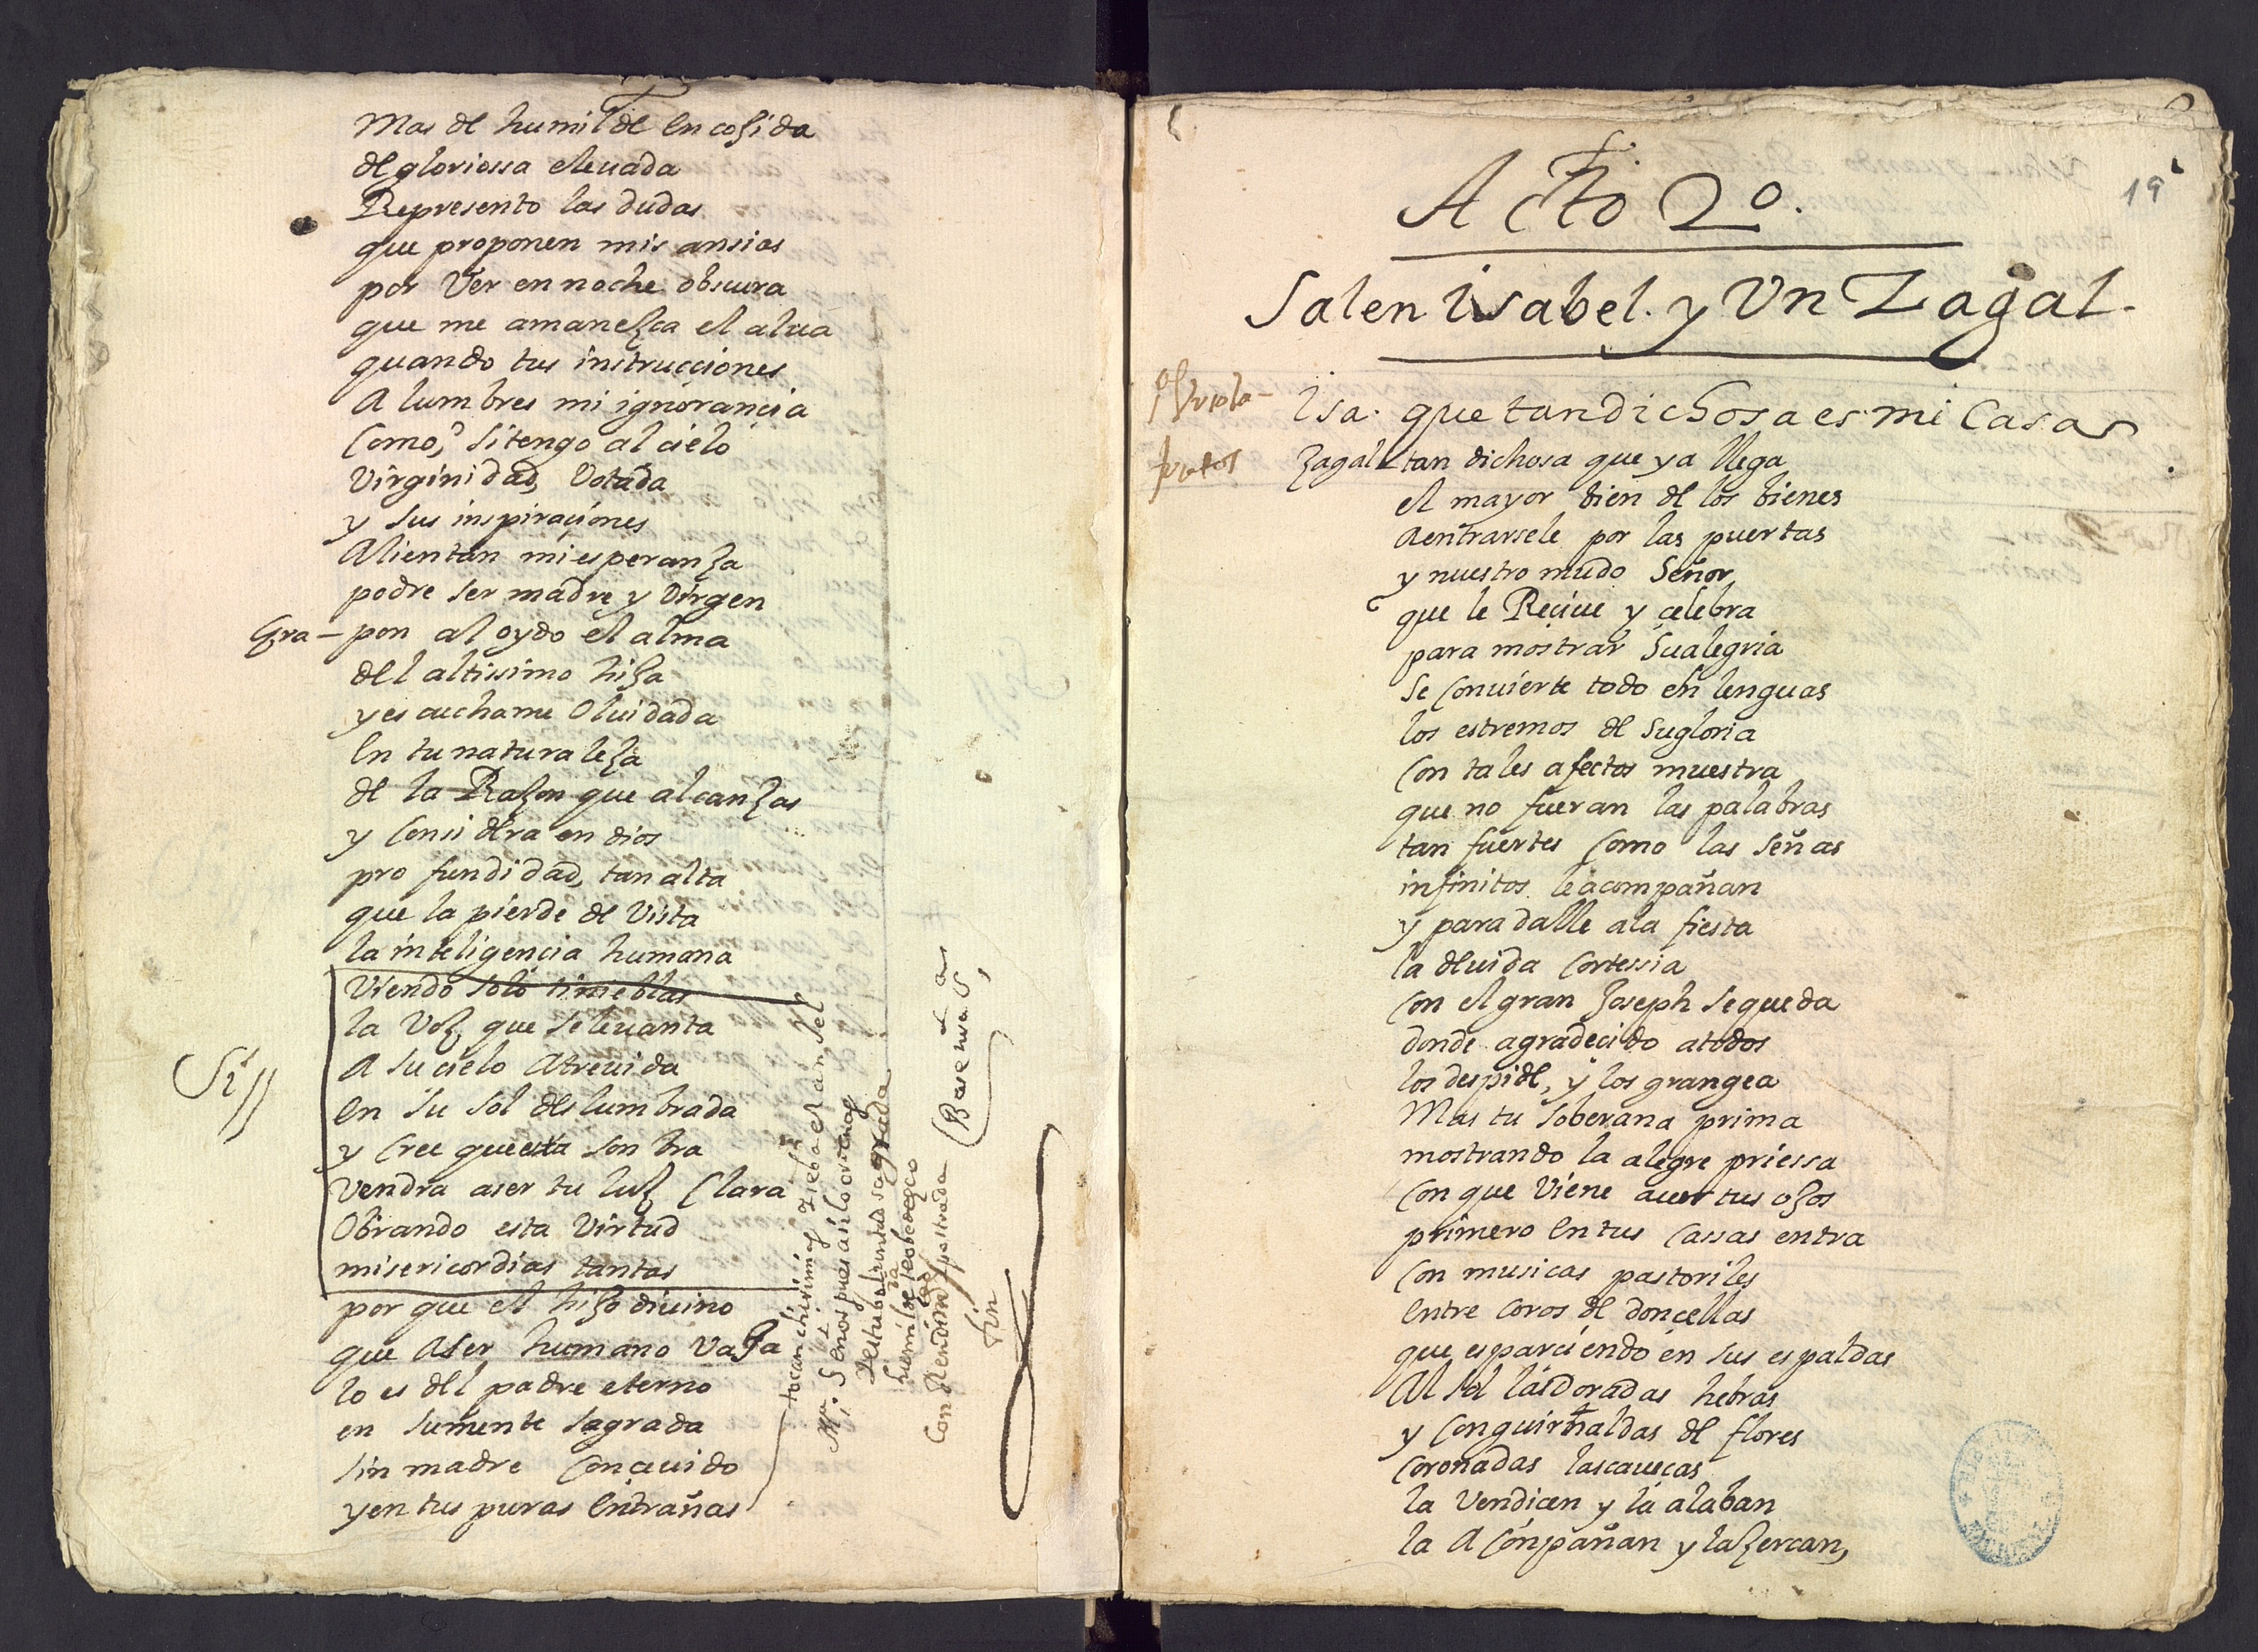 Mas de humilde encojida
de gloriossa eleuada
Represento las dudas
que proponen mis ansias
por Ver en noche obscura
que me amanesca el alua
quando tus instrucciones
Alumbres mi ignorancia
Como, si tengo al cielo
Virginidad, Votada
y sus inspiraciones
Alientan mi esperanza
podre ser madre y Virgen
Gra — pon al oydo el alma
del altissimo hija
y escuchame Oluidada
En tu naturaleza
de la Razon que alcanzas
y Considera en dios
profundidad, tan alta
que la pierde de Vista
la inteligencia humana
Viendo solo tinieblas
la Voz que se leuanta
A su cielo Atreuida
En su sol deslumbrada
Si //
y Cree que esta sonbra
Vendra aser tu luz Clara
Obrando esta Virtud
misericordias tantas
por que el hijo diuino
que Aser humano Vaja
lo es del padre eterno
en su mente sagrada
sin madre Conceuido
y en tus puras Entrañas
tocan chirimias
Señor pues asi lo ordenas
De tu boluntad sagrada
humilde te obedezco
Con Rendim postrada
fin
19
Acto 2º.
Salen Isabel. y Un Zagal.
Isa. que tan dichosa es mi Casa
Zagal tan dichosa que ya llega
el mayor bien de los bienes
Aentrarsele por las puertas
y nuestro mudo Señor
que le Reciue y celebra
para mostrar Su alegria
se Conuierte todo en lenguas
los estremos de su gloria
Con tales afectos muestra
que no fueran las palabras
tan fuertes Como las señas
infinitos le acompañan
y para dalle ala fiesta
la deuida Cortessia
Con el gran Joseph se queda
donde agradecido atodos
los despide, y los grangea
Mas tu soberana prima
mostrando la alegre priessa
Con que Viene auer tus ojos
primero En tus Cassas entra
Con musicas pastoriles
Entre Coros de doncellas
que esparciendo en sus espaldas
Al sol las doradas hebras
y Con guirnaldas de flores
Coronadas las cauecas
la Vendicen y la alaban
la Aconpañan y la zercan,